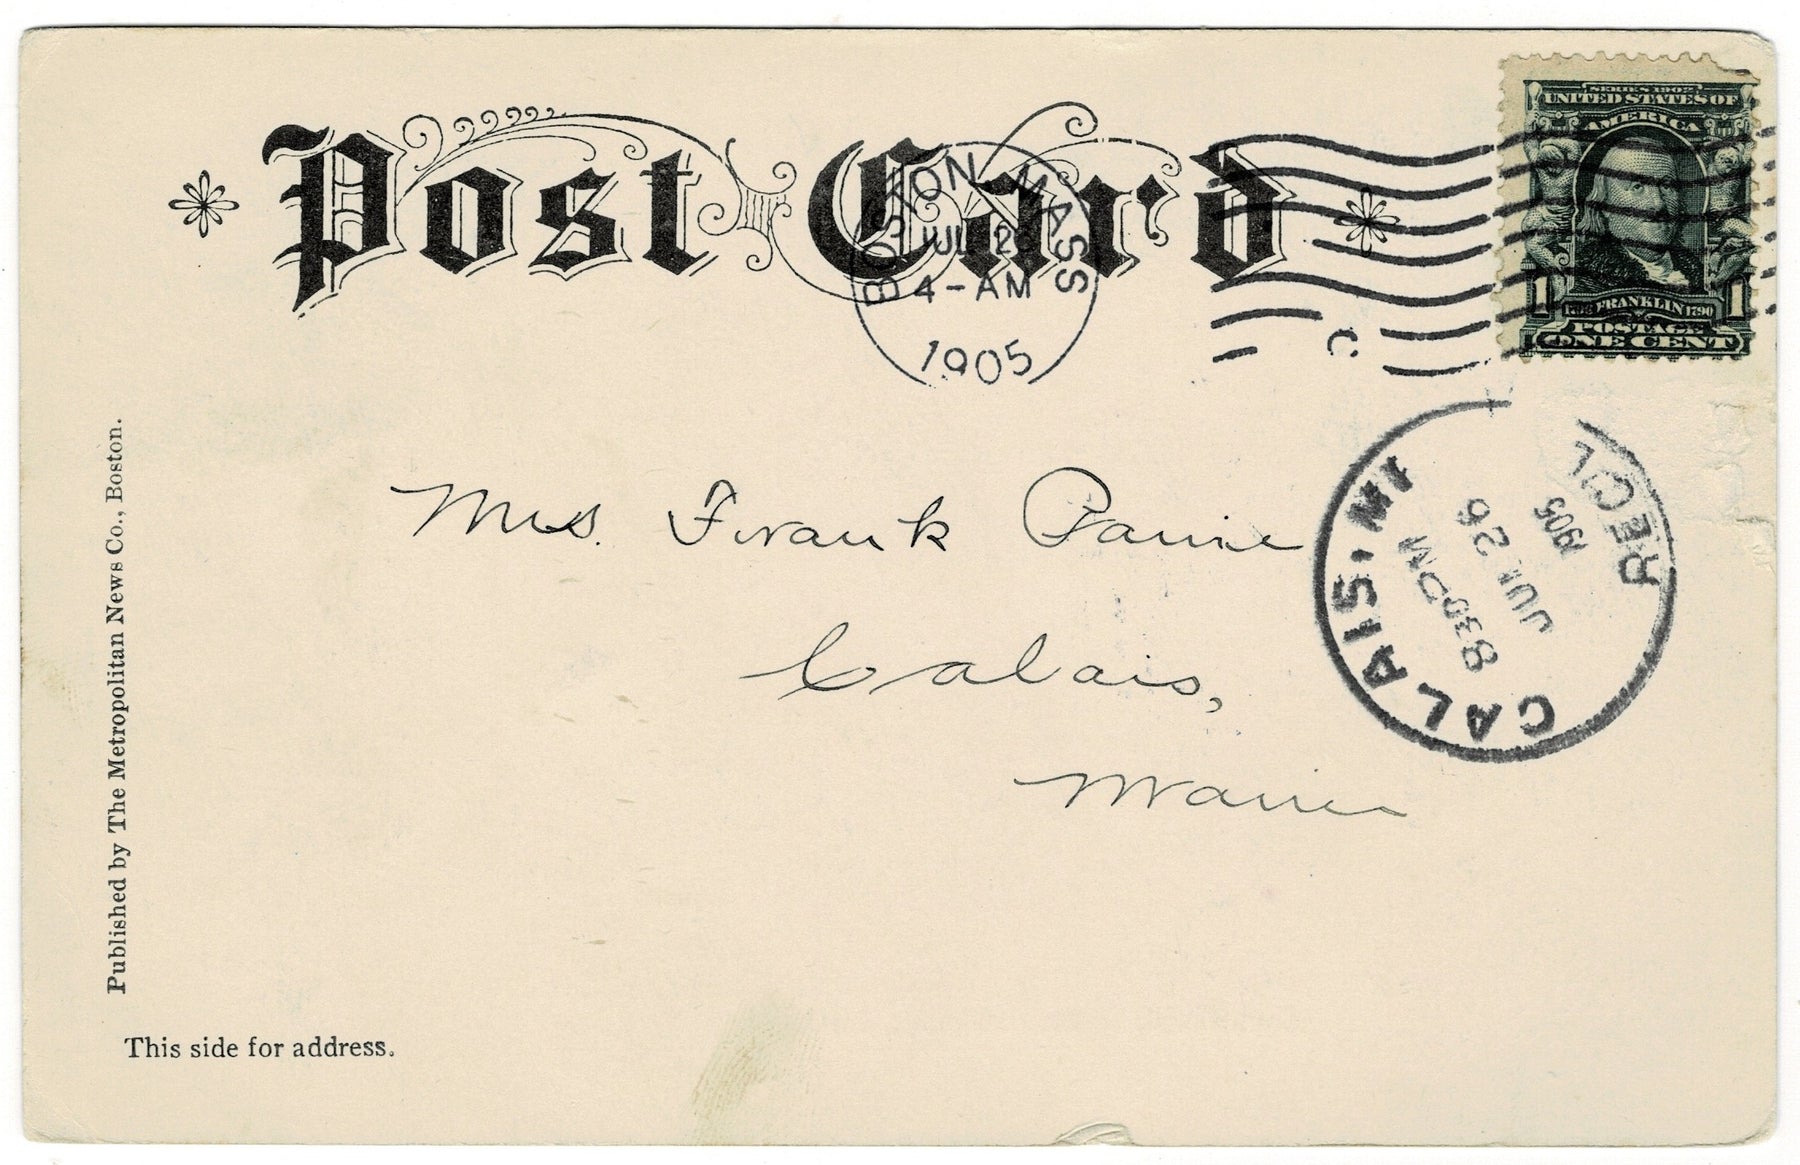 Post Card
BOSTON MASS
JUL 26
4-AM
1905
C
SERIES 1902
UNITED STATES OF
AMERICA
1 FRANKLIN 1790 1
POSTAGE
ONE CENT
Mrs. Frank
Calais,
Maine
CALAIS, ME
830PM
JUL 26
1905
REC'D
Published by The Metropolitan News Co., Boston.
This side for address.